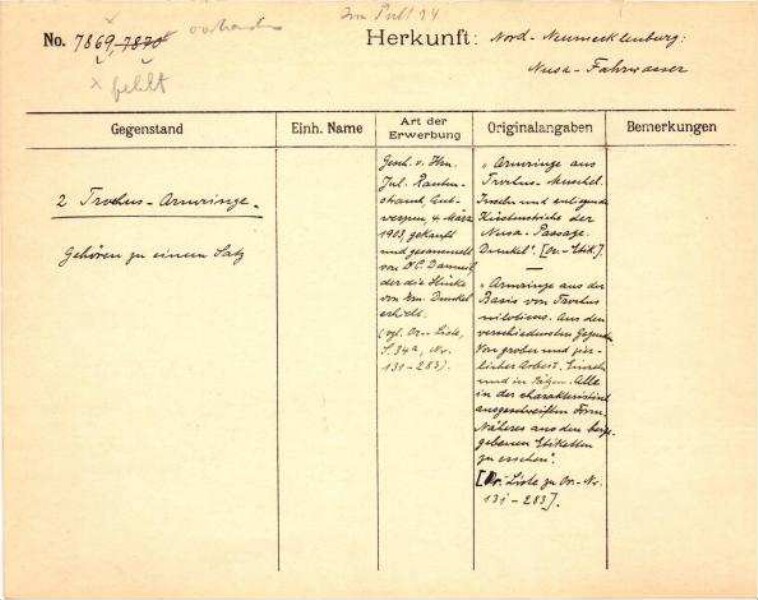 Im Pult 94
vorhanden
No. 7869, 7870
Herkunft: Nord-Neumecklenburg:
Nusa-Fahrwasser
x fehlt
Gegenstand
Einh. Name
Art der Erwerbung
Originalangaben
Bemerkungen
2 Trochus-Armringe.
Gehören zu einem Satz
Gesch. v. Hrn.
Jul. Rauten-
strauch, Ant-
werpen, 4. März
1903, gekauft
und gesammelt
von Dr C. Danneil,
der die Stücke
von Hrn. Dunckel
erhielt.
(vgl. Or.-Liste,
S. 34a, Nr.
131-283).
"Armringe aus
Trochus-Muschel.
Inseln und anliegende
Küstenstriche der
Nusa-Passage.
Dunckel". [Or.-Etik.].
—
"Armringe aus der
Basis von Trochus
niloticus. Aus den
verschiedensten Gegenden
Von grober und zier-
licher Arbeit. Einzeln
und in Sätzen. Alle
in der charakteristisch
ausgeschweiften Form.
Näheres aus den beige-
gebenen Etiketten
zu ersehen".
[Or.-Liste zu Or.-Nr.
131-283].